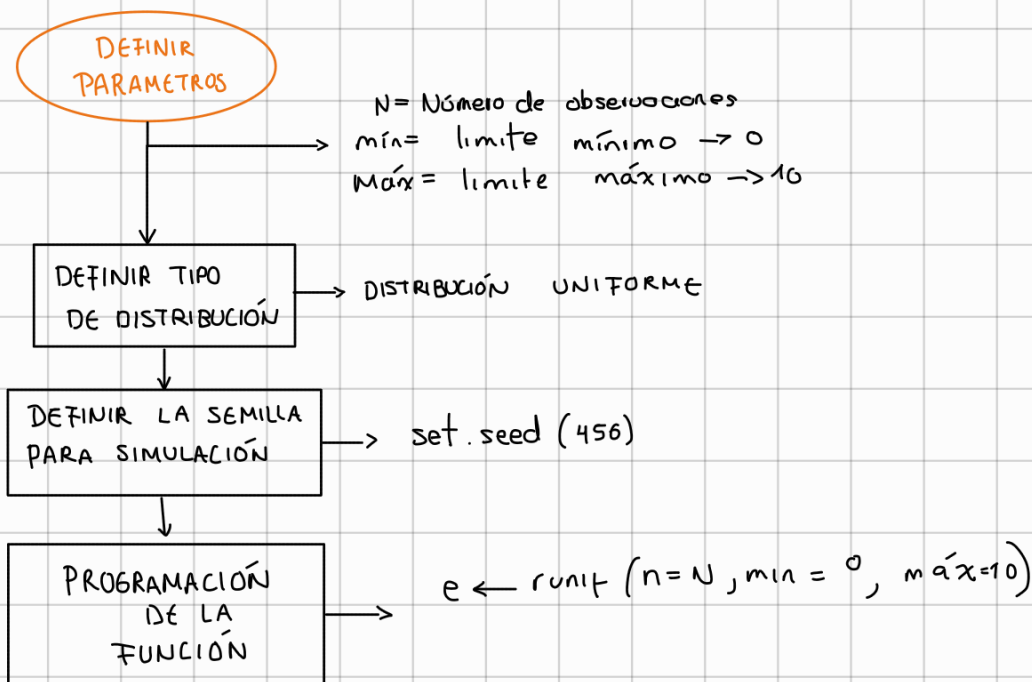 DEFINIR
PARAMETROS
N= Número de observaciones
mín= limite mínimo → 0
Máx= limite máximo → 10
DEFINIR TIPO
DE DISTRIBUCIÓN
DISTRIBUCIÓN UNIFORME
DEFINIR LA SEMILLA
PARA SIMULACIÓN
set.seed (456)
PROGRAMACIÓN
DE LA
FUNCIÓN
e ← runif (n=N, min = 0, máx=10)